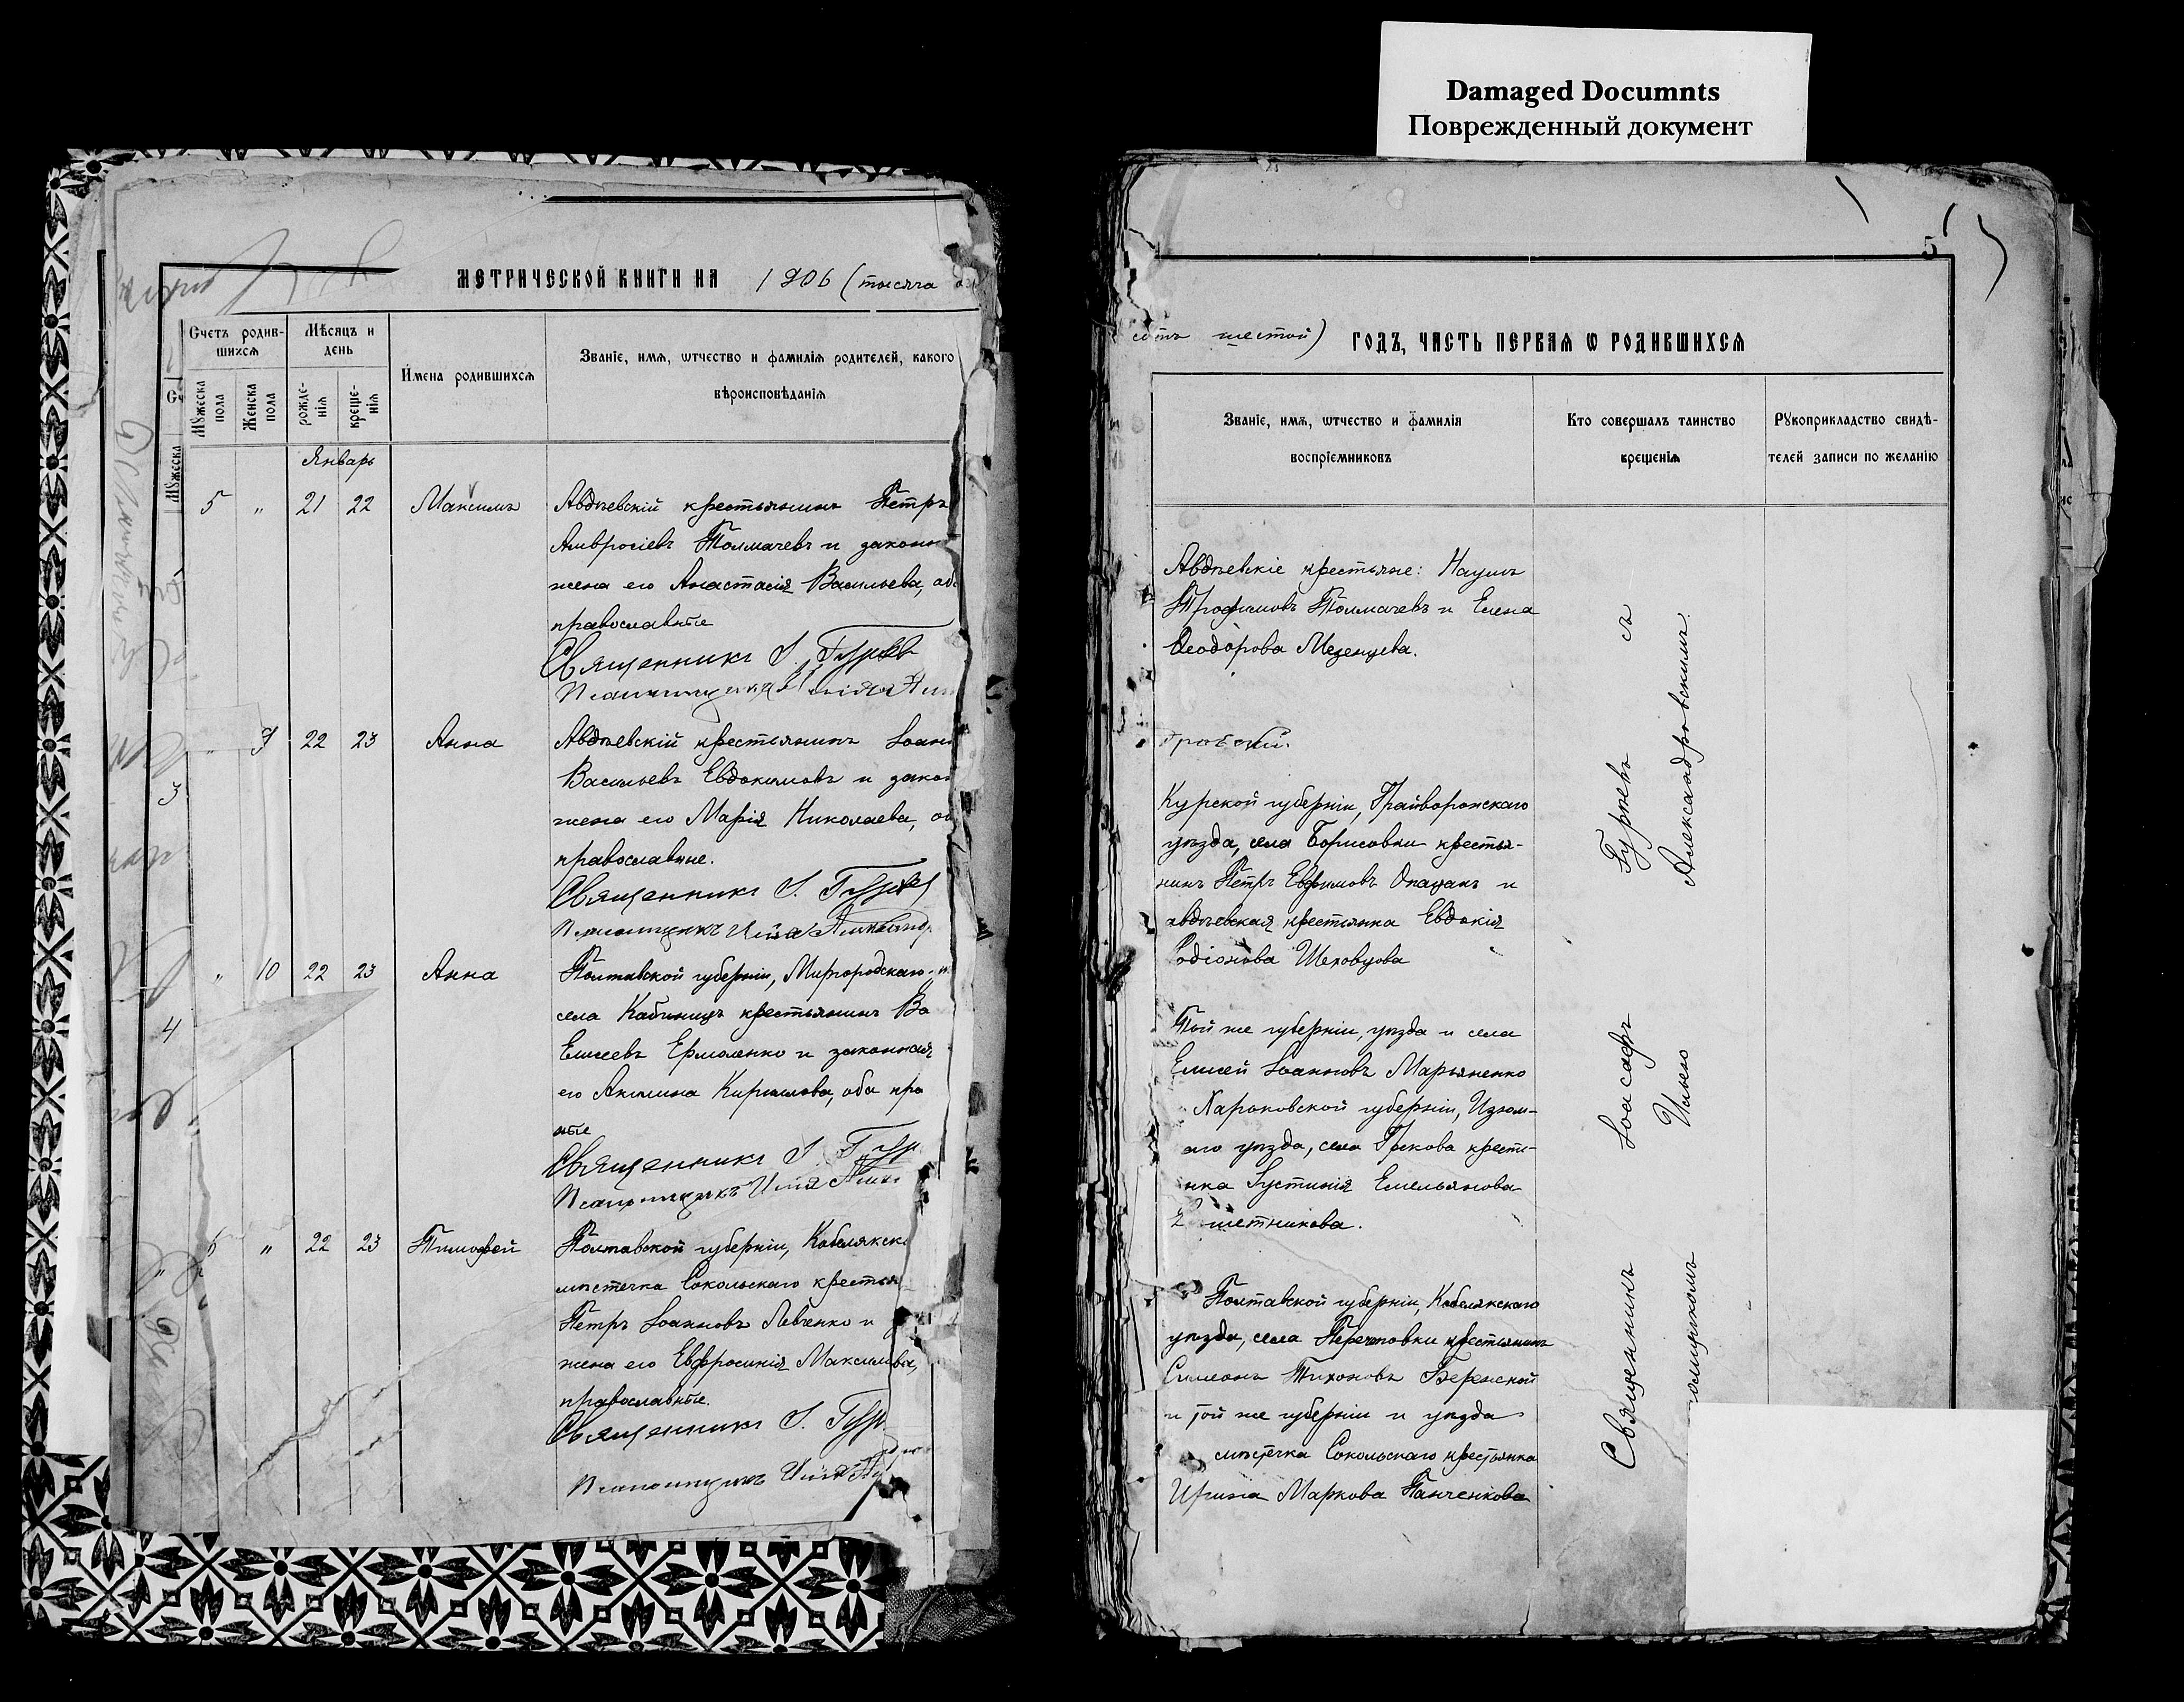 Damaged Documnts
Поврежденный документ
МЕТРИЧЕСКОЙ КНИГИ НА 1906 (тысяча
Счетъ родив-
шихся
Мужеска пола
Женска пола
Мѣсяцъ и
день
рожде-
нія
креще-
нія
Имена родившихся
Званіе, имя, ѡтчество и фамилія родителей, какого
вѣроисповѣданія
Январь
5 " 21 22 Максимъ
Авдѣевскій крестьянинъ Петръ
Амвросіевъ Толмачевъ и законн
жена его Анастасія Васильева, об
православные
Священникъ І. Гурьев
Псаломщикъ Илія
" 9 22 23 Анна
Авдѣевскій крестьянинъ Іоанн
Васильевъ Евдокимовъ и закон
жена его Марія Николаева, об
православные.
Священникъ І. Гурьев
Псаломщикъ Илія Александр
" 10 22 23 Анна
Полтавской губерніи, Миргородскаго
села крестьянинъ Ва
Елисеевъ Ермоленко и законная
его Акилина Кириллова, оба пра
ные
Священникъ І. Гур
Псаломщикъ Илія
6 " 22 23 Тимофей
Полтавской губерніи, Кобелякск
мѣстечка Сокольскаго крестьян
Петръ Іоанновъ Левченко и
жена его Евфросинія Максимова,
православные.
Священникъ І. Гур
Псаломщикъ Илія
3
4
5
сотъ шестой) ГОДЪ, ЧАСТЬ ПЕРВАЯ Ѡ РОДИВШИХСЯ
Званіе, имя, ѡтчество и фамилія
воспріемниковъ
Кто совершалъ таинство
крещенія
Рукоприкладство свидѣ-
телей записи по желанію
Авдѣевскіе крестьяне: Наумъ
Трофимовъ Толмачевъ и Елена
Ѳеодорова Мезенцева.
Курской губерніи, Грайворонскаго
уѣзда, села Борисовки крестья-
нинъ Петръ Евфимовъ и
авдѣевская крестьянка Евдокія
Родіонова Шеховцова
Той же губерніи, уѣзда и села
Елисей Іоанновъ Марьяненко
Харьковской губерніи, Изюм-
аго уѣзда, села крестья-
нка Іустинія Емельянова
Полтавской губерніи, Кобелякскаго
уѣзда, села крестьянинъ
Симеонъ Тихоновъ
и той же губерніи и уѣзда
мѣстечка Сокольскаго крестьянка
Ирина Маркова Панченкова
Священникъ Іоасафъ Гурьевъ съ
псаломщикомъ Ильею Александровскимъ.